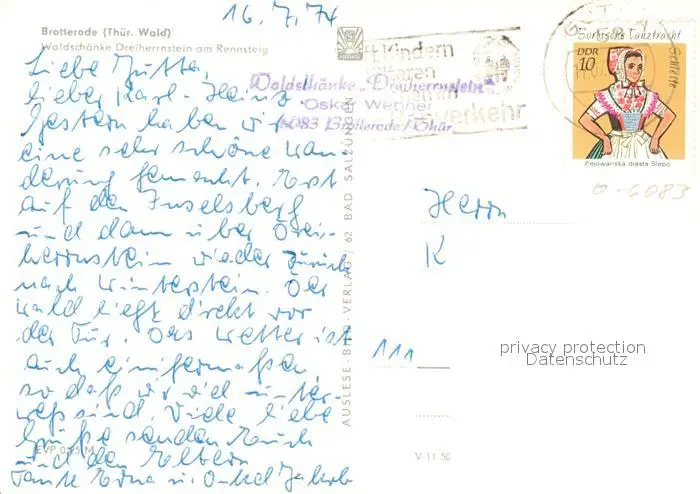 16.7.74
Brotterode (Thür. Wald)
Waldschänke Dreiherrnstein am Rennsteig
Liebe Jutta,
lieber Karl-Heinz
Gestern haben wir
eine sehr schöne Wan-
derung gemacht. Erst
auf den Inselsberg
und dann über Drei-
herrnstein wieder zurück
nach Winterstein. Der
Wald liegt direkt vor
der Tür. Das Wetter ist
auch einigermaßen
so daß wir viel unter-
wegs sind. Viele liebe
Grüße senden Euch
und den Eltern
Tante Erna u. Onkel Jakob
EVP 0,25 M
AUSLESE-BILD-VERLAG / 62 BAD SALZUNGEN
V 11 50
Kindern
verkehr
Waldschänke „Dreiherrnstein"
Oskar Werner
6083 Brotterode / Thür.
Sorbische Tanztracht
DDR
10
Schleife
Pejowańska drasta Slepo
O-6083
Herrn
K
111
privacy protection
Datenschutz